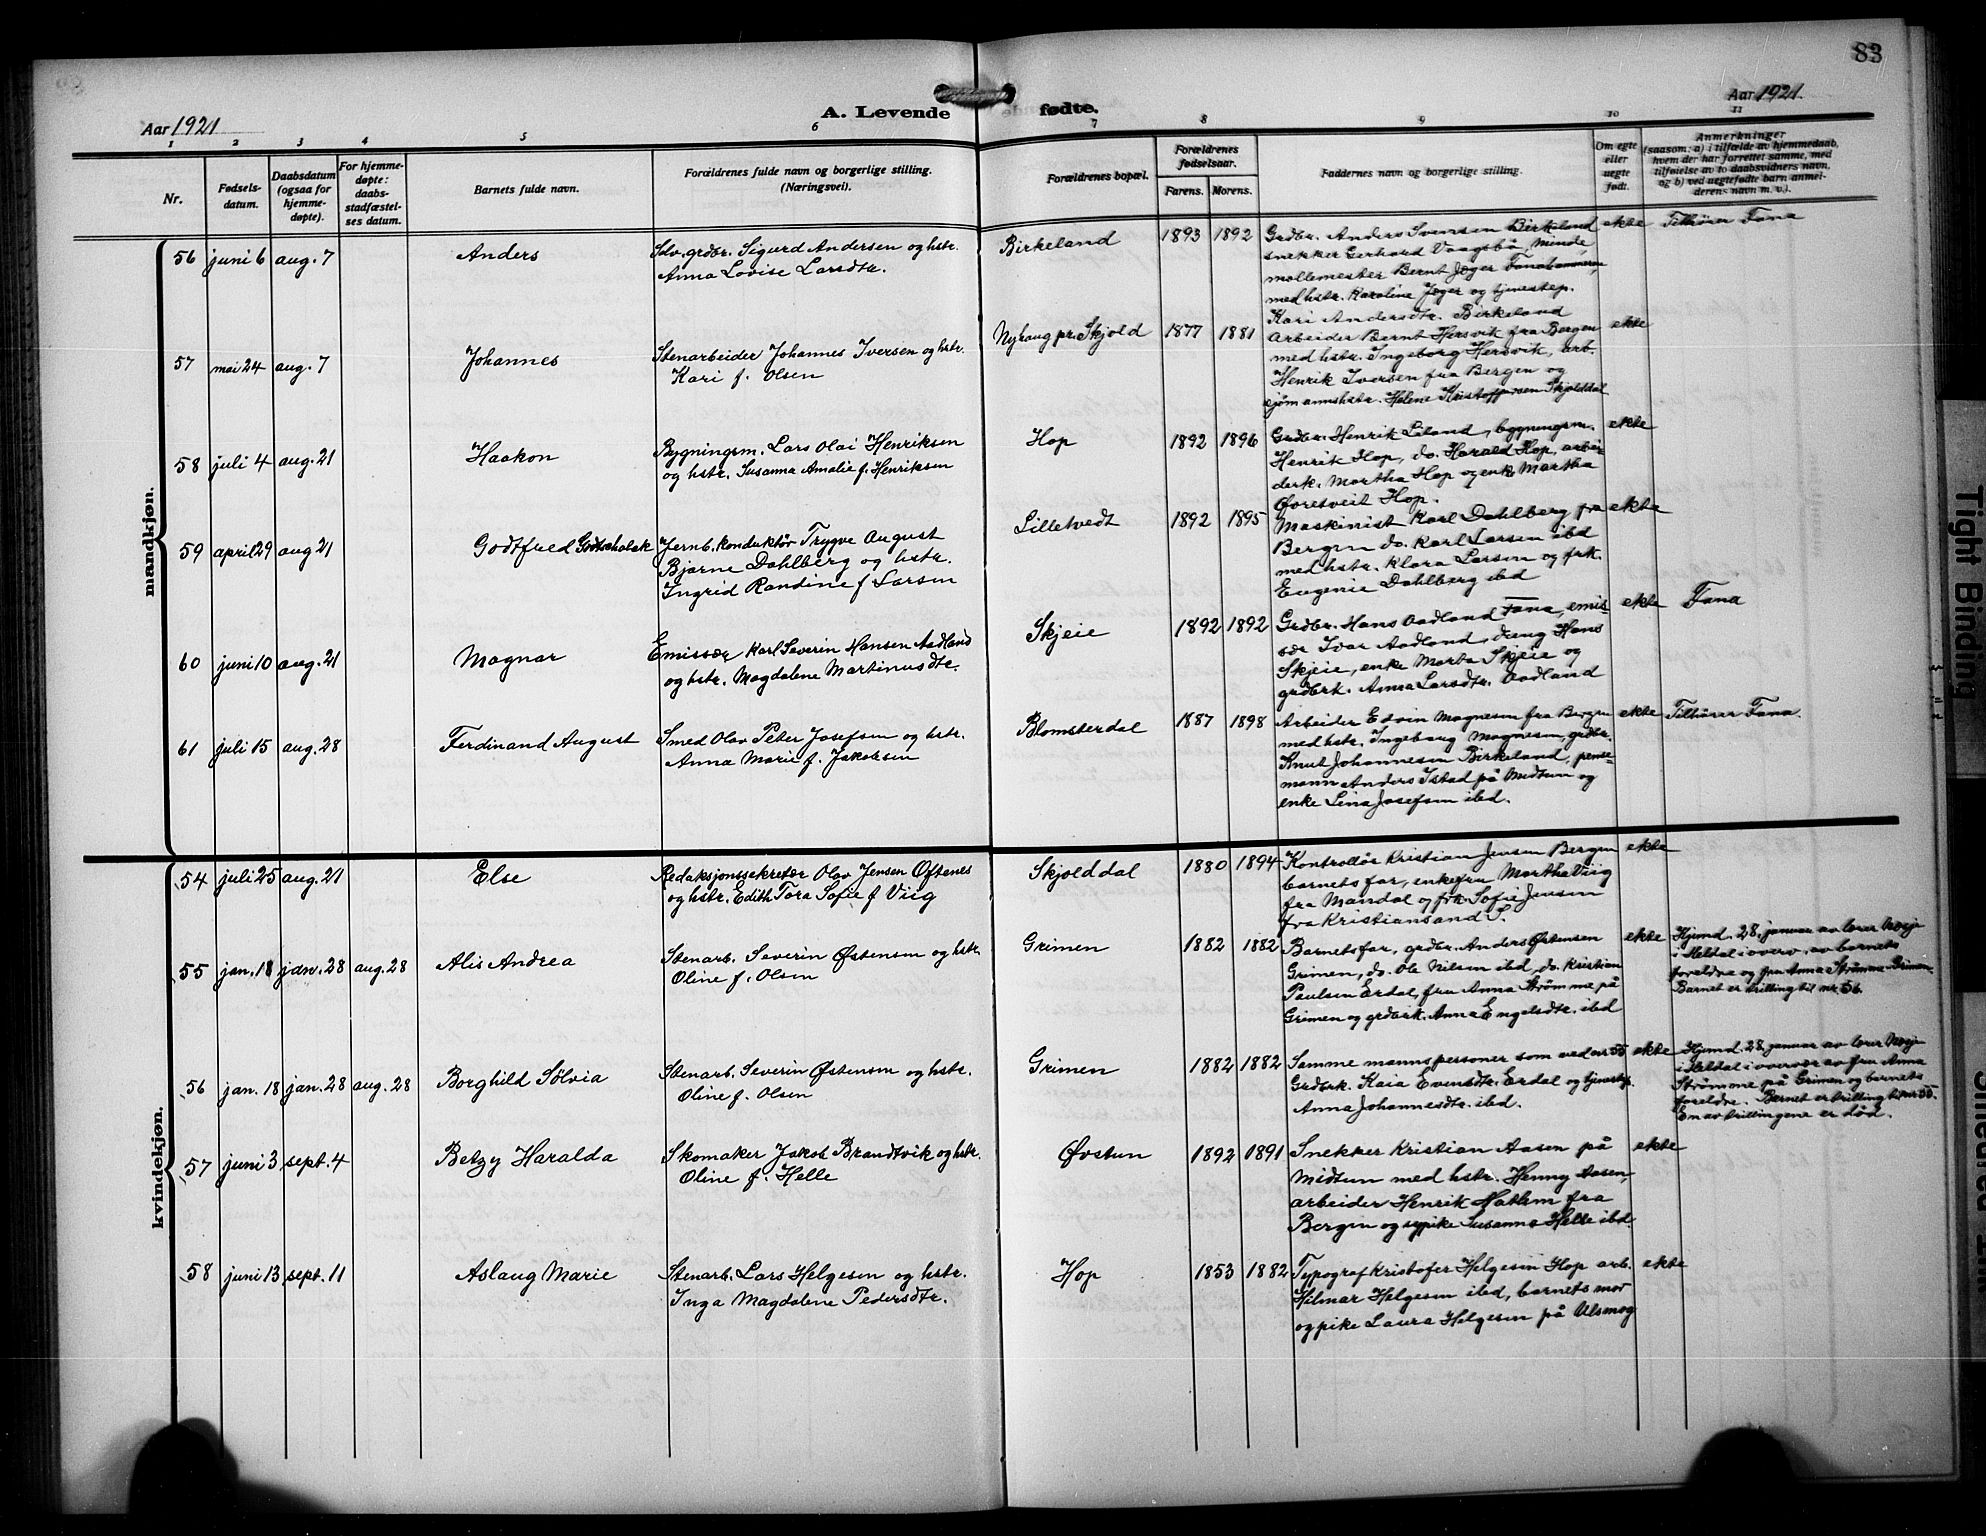 83
Aar 1921
A. Levende fødte.
Aar 1921
1 2 3 4 5 6 7 8 9 10 11
Nr.
Fødsels-
datum.
Daabsdatum
(ogsaa for
hjemme-
døpte).
For hjemme-
døpte:
daabs-
stadfæstel-
ses datum.
Barnets fulde navn.
Forældrenes fulde navn og borgerlige stilling.
(Næringsvei).
Forældrenes bopæl.
Forældrenes
fødselsaar.
Farens. Morens.
Faddernes navn og borgerlige stilling.
Om egte
eller
uegte
født.
Anmerkninger
(saasom: a) i tilfælde av hjemmedaab,
hvem der har forrettet samme, med
tilføielse av to daabsvidners navn,
og b) ved uegtefødte barn anmel-
derens navn m. v.).
mandkjøn.
56 juni 6 aug. 7
Anders
Selv. grdbr. Sigurd Andersen og hstr.
Anna Lovise Larsdtr.
Birkeland
1893 1892
Grdbr. Anders Svensen Birkeland
snekker Gerhard Vaagsbø, Minde,
møllemester Bernt Jæger Fanahammeren,
med hstr. Karoline Jæger og tjenestep.
Kari Andersdtr. Birkeland
ekte
Tilhører Fana
57 mai 24 aug. 7
Johannes
Stenarbeider Johannes Iversen og hstr.
Kari f. Olsen
Nyhaug pr. Skjold
1877 1881
Arbeider Bernt Hersvik fra Bergen
med hstr. Ingeborg Hersvik, arb.
Henrik Iversen fra Bergen og
sjømannshstr. Helene Kristoffersen Skjolddal
ekte
58 juli 4 aug. 21
Haakon
Bygningsm. Lars Olai Henriksen
og hstr. Susanna Amalie f. Henriksen
Hop
1892 1896
Grdbr. Henrik Liland, bygningsm.
Henrik Hop, do. Harald Hop, arbei-
derk. Martha Hop og enk. Martha
Øvretveit Hop.
ekte
59 april 29 aug 21
Godtfred Godtscholak
Jernb. konduktør Trygve August
Bjarne Dahlberg og hstr.
Ingrid Randine f Larsen
Lilletvedt
1892 1895
Maskinist Karl Dahlberg fra
Bergen do. Karl Larsen ibd
med hstr. Klara Larsen og frk.
Eugenie Dahlberg ibd
ekte
60 juni 10 aug. 21
Magnar
Emissær Karl Severin Hansen Aadland
og hstr. Magdalene Martinusdtr.
Skjeie
1892 1892
Grdbr. Hans Aadland Fana, emis-
sær Ivar Aadland, dreng Hans
Skjeie, enke Marta Skjeie og
grdbrk. Anna Larsdtr. Aadland
ekte
Fana
61 juli 15 aug. 28
Ferdinand August
Smed Olav Peter Josefsen og hstr.
Anna Marie f. Jakobsen
Blomsterdal
1887 1898
Arbeider Edvin Magnesen fra Bergen
med hstr. Ingeborg Magnesen, grdbr.
Knut Johannesen Birkeland, pense-
mann Anders Istad på Midtun og
enke Lina Josefsen ibd.
ekte
Tilhører Fana.
kvindekjøn.
54 juli 25 aug. 21
Else
Redaksjonssekretær Olav Jensen Øftenes
og hstr. Edith Tora Sofie f Viig
Skjolddal
1880 1894
Kontrollør Kristian Jensen Bergen
barnets far, enkefru Martha Viig
fra Mandal og frk. Sofie Jensen
fra Kristiansand S.
ekte
55 jan. 18 jan. 28 aug. 28
Alis Andrea
Stenarb. Severin Østensen og hstr.
Oline f. Olsen
Grimen
1882 1882
Barnets far, grdbr. Anders Østensen
Grimen, do. Ole Nilsen ibd, do. Kristian
Paulsen Erdal, fru Anna Strømme på
Grimen og grdbrk. Anna Engelsdtr. ibd
ekte
Hjemd. 28. januar av lærer
i Heldal i overv. av barnets
foreldre og fru Anna Strømme Grimen.
Barnet er trilling til nr. 56.
56 jan. 18 jan. 28 aug. 28
Borghild Sølvia
Stenarb. Severin Østensen og hstr.
Oline f. Olsen
Grimen
1882 1882
Samme mannspersoner som ved nr 55
Grdbrk. Kaia Evensdtr. Erdal og tjenestep.
Anna Johannesdtr. ibd.
ekte
Hjemd. 28. januar av lærer
i Heldal i overvær av fru Anna
Strømme på Grimen og barnets
foreldre. Barnet er trilling til nr 55.
En av trillingene er død.
57 juni 3 sept. 4
Betzy Haralda
Skomaker Jakob Brandtvik og hstr.
Oline f. Helle
Øvstun
1892 1891
Snekker Kristian Aasen på
Midtun med hstr. Henny Aasen,
arbeider Henrik Hatlem fra
Bergen og sypike Susanna Helle ibd.
ekte
58 juni 13 sept. 11
Aslaug Marie
Stenarb. Lars Helgesen og hstr.
Inga Magdalene Pedersdtr.
Hop
1853 1882
Typograf Kristofer Helgesen Hop arb.
Hilmar Helgesen ibd, barnets mor
og pike Laura Helgesen på Ulsmåg
ekte
Tight Binding